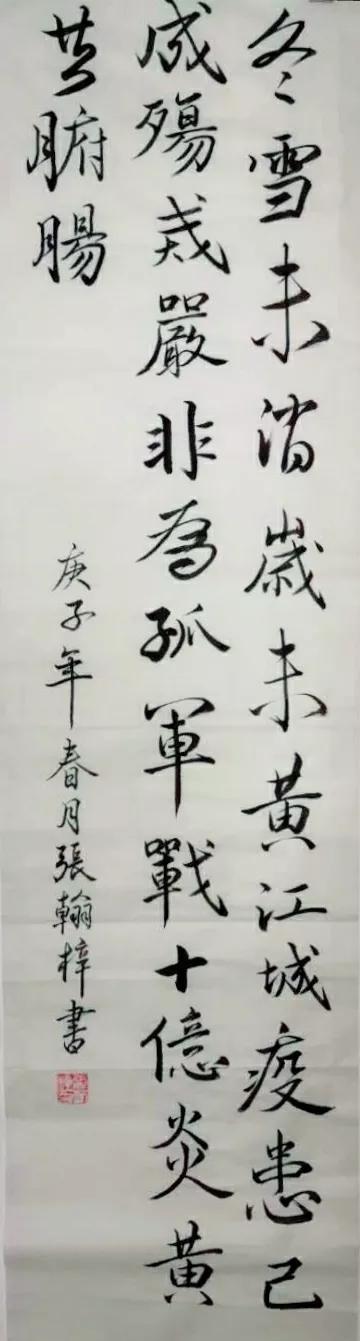 冬雪未消歲未黃江城疫患已
成殤戒嚴非為孤軍戰十億炎黃
共腑腸
庚子年春月張翰梓書